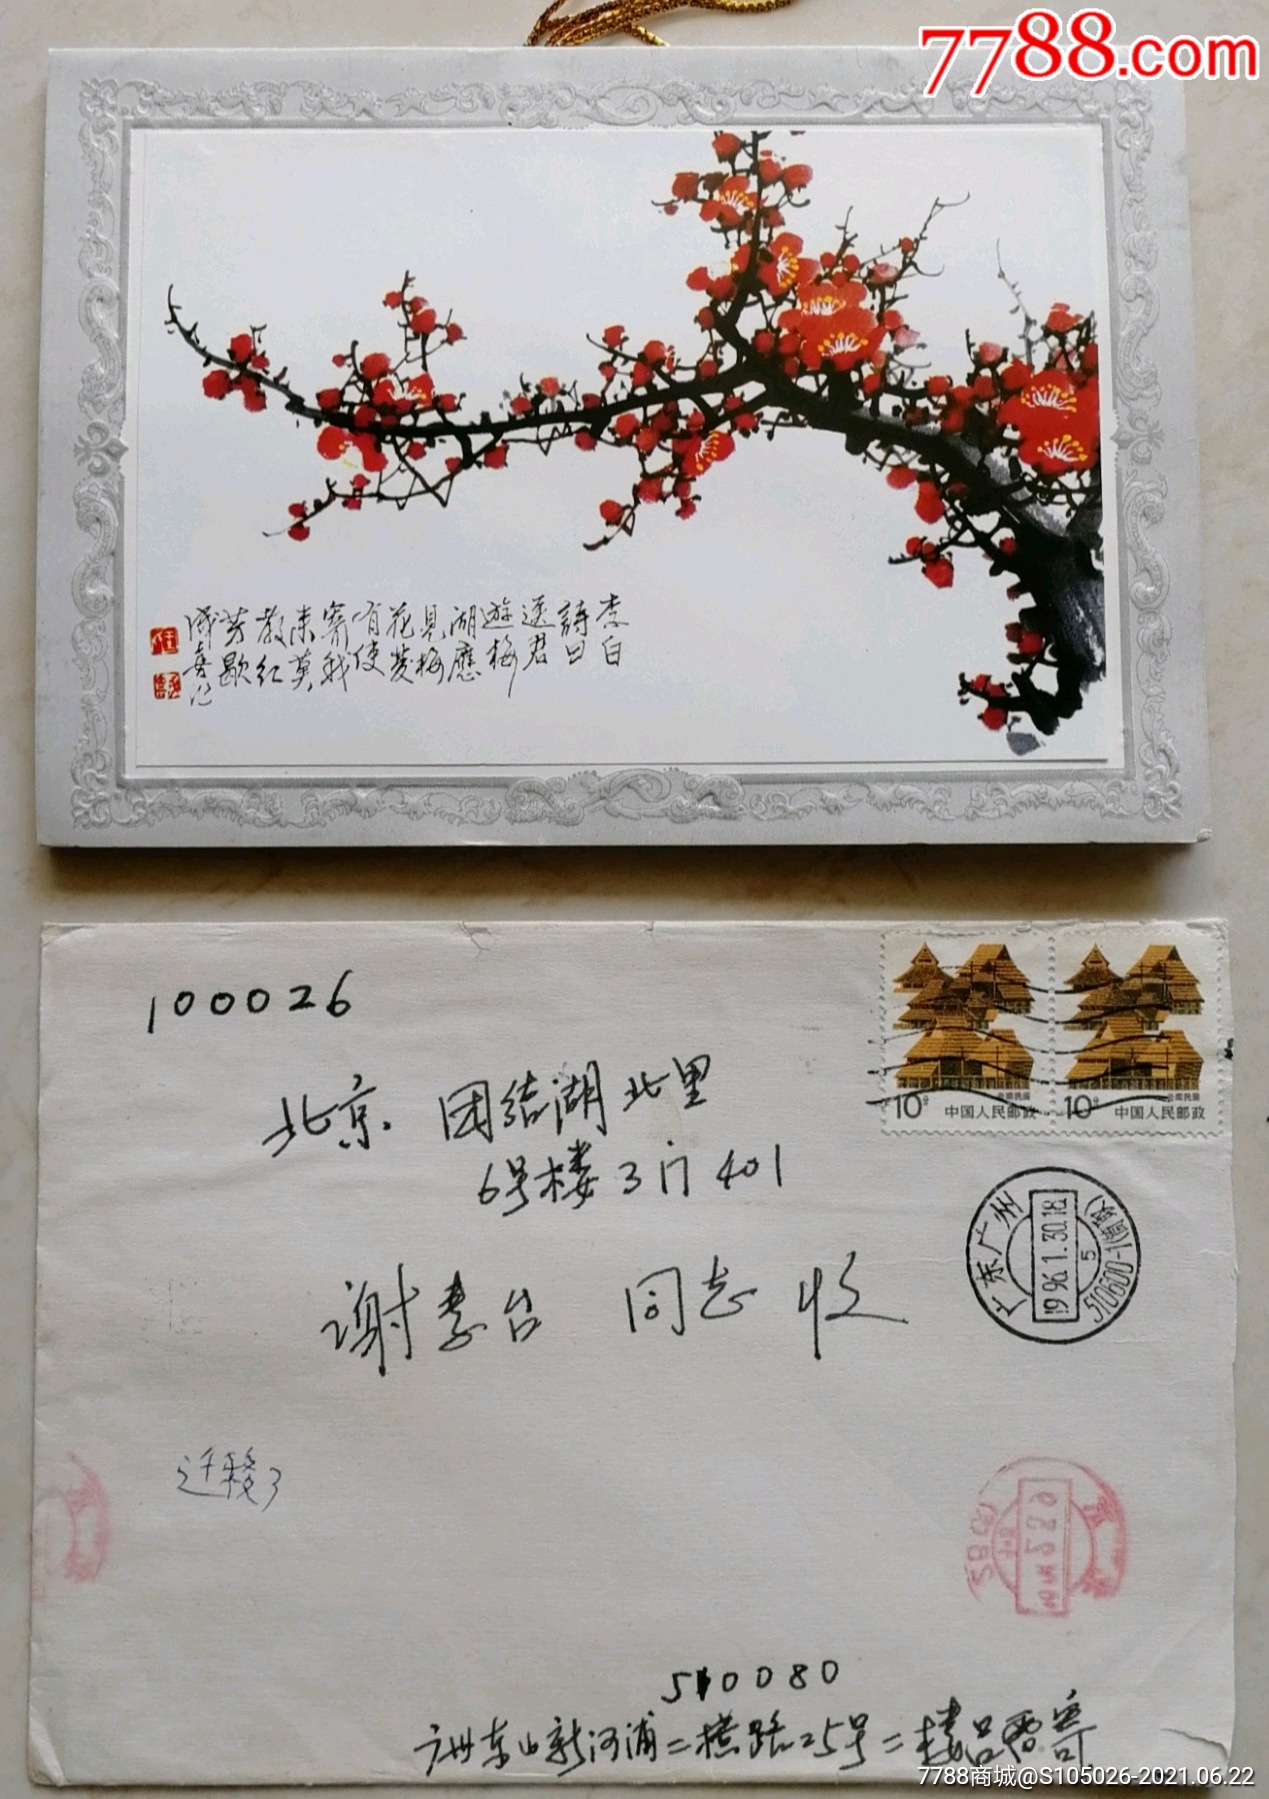 7788.com
李白
詩曰
送君
遊梅
湖應
見梅
花發
有使
寄我
来莫
教红
芳歇
成喜记
100026
北京 团结湖北里
6号楼3门401
谢素台 同志 收
10分 中国人民邮政
云南民居
10分 中国人民邮政
云南民居
广东广州
1996.1.30.18
5
510600-1(筒取)
迁移了
510080
广州东山新河浦二横路25号二楼吕西寄
7788商城@S105026-2021.06.22